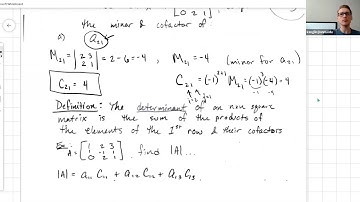 the minor & cofactor of
0 2 1
a) a₂₁
M₂₁ = |2 3; 2 1| = 2 - 6 = -4 , M₂₁ = -4 (minor for a₂₁)
C₂₁ = 4
C₂₁ = (-1)²⁺¹ M₂₁ = (-1)³(-4) = 4
Definition: The determinant of an nxn square
matrix is the sum of the products of
the elements of the 1st row & their cofactors
Ex: A = [1 2 3; 1 -2 1; 0 2 1] , find |A| ...
|A| = a₁₁ C₁₁ + a₁₂ C₁₂ + a₁₃ C₁₃